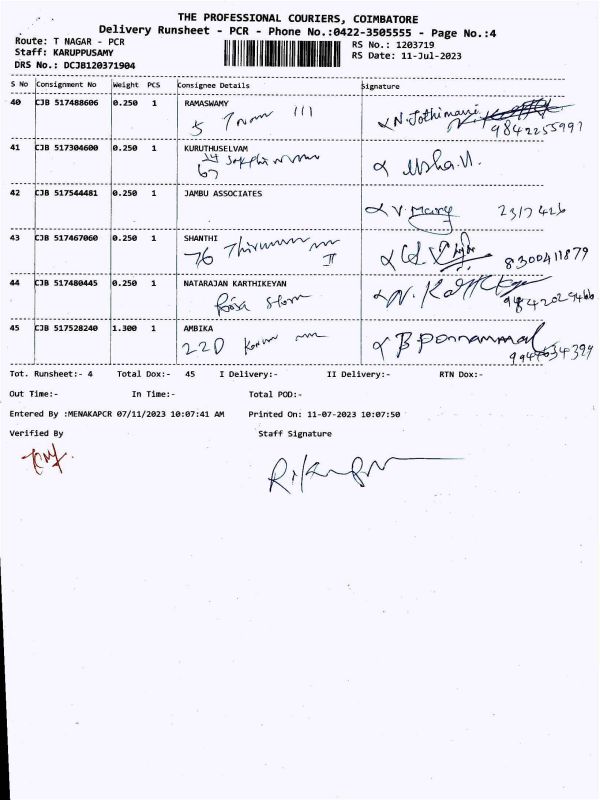 THE PROFESSIONAL COURIERS, COIMBATORE
Delivery Runsheet - PCR - Phone No.:0422-3505555 - Page No.:4
Route: T NAGAR - PCR
RS No.: 1203719
Staff: KARUPPUSAMY
RS Date: 11-Jul-2023
DRS No.: DCJB120371904
S No Consignment No Weight PCS Consignee Details Signature
40 CJB 517488606 0.250 1 RAMASWAMY
5
N. Jothimani
9842255991
41 CJB 517304600 0.250 1 KURUTHUSELVAM
67
Usha.N.
42 CJB 517544481 0.250 1 JAMBU ASSOCIATES
V. Mary
43 CJB 517467060 0.250 1 SHANTHI
76
II
8300411879
44 CJB 517480445 0.250 1 NATARAJAN KARTHIKEYAN
45 CJB 517528240 1.300 1 AMBIKA
22D
B Ponnammal
Tot. Runsheet:- 4 Total Dox:- 45 I Delivery:- II Delivery:- RTN Dox:-
Out Time:- In Time:- Total POD:-
Entered By :MENAKAPCR 07/11/2023 10:07:41 AM Printed On: 11-07-2023 10:07:50
Verified By Staff Signature